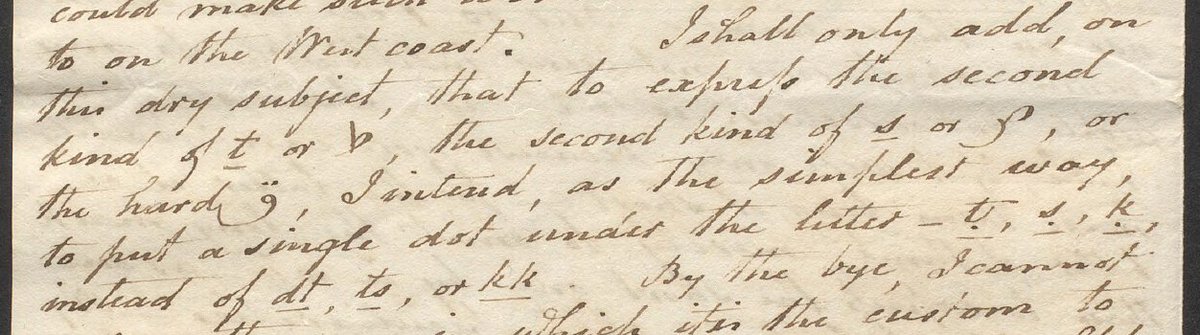 could make such
to on the West coast. I shall only add, on
this dry subject, that to express the second
kind of t or ط, the second kind of s or ص, or
the hard ق, I intend, as the simplest way,
to put a single dot under the letter – ṭ, ṣ, ḳ,
instead of dt, ts, or kk. By the bye, I cannot
which it is the custom to